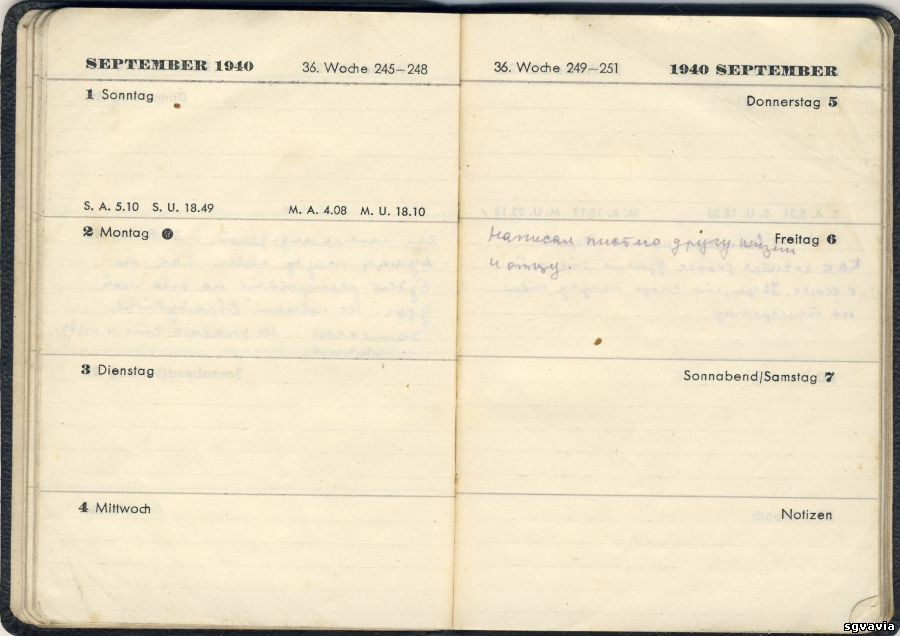 SEPTEMBER 1940 36. Woche 245–248
1 Sonntag
S. A. 5.10 S. U. 18.49 M. A. 4.08 M. U. 18.10
2 Montag
3 Dienstag
4 Mittwoch
36. Woche 249–251 1940 SEPTEMBER
Donnerstag 5
Freitag 6
Написал письмо другу жизни
и отцу.
Sonnabend/Samstag 7
Notizen
sgvavia